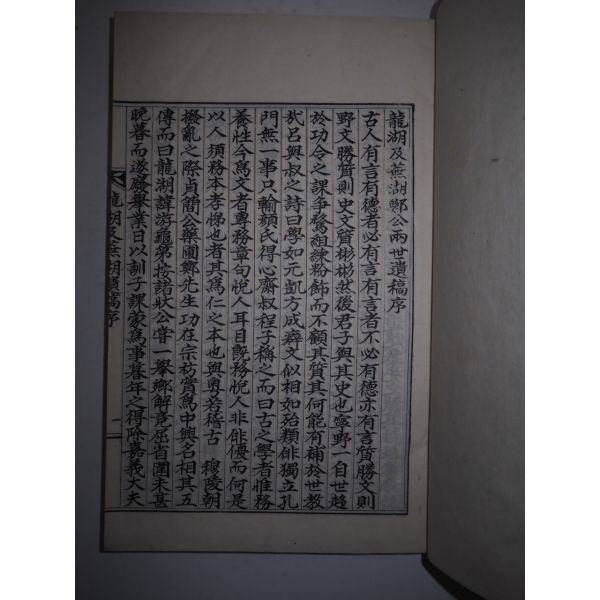 龍湖及蕪湖鄭公兩世遺稿序
古人有言有德者必有言有言者不必有德亦有言質勝文則
野文勝質則史文質彬彬然後君子與其史也寧野一自世趍
於功令之課爭騖組練粉飾而不顧其質其何能有補於世教
㢤呂與叔之詩曰學如元凱方成癖文似相如殆類俳獨立孔
門無一事只輸顔氏得心齋叔程子稱之而曰古之學者惟務
養性今爲文者專務章句悅人耳目旣務悅人非俳優而何是
以人須務本孝悌也者其爲仁之本也與奧若稽古 穆陵朝
撥亂之際貞簡公藥圃鄭先生功在宗祊賞爲中興名相其五
傳而曰龍湖諱游龜第按諾狀公甞一舉鄕解竟屈省圍未甚
晩暮而遂廢舉業日以訓子課蒙爲事暮年之得除嘉義大夫
龍湖及蕪湖遺稿序
一